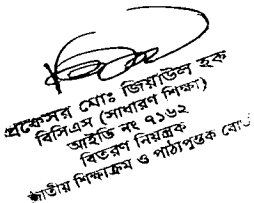 প্রফেসর মোঃ জিয়াউল হক
বিসিএস (সাধারণ শিক্ষা)
আইডি নং ৭১৬২
বিতরণ নিয়ন্ত্রক
জাতীয় শিক্ষাক্রম ও পাঠ্যপুস্তক বোর্ড